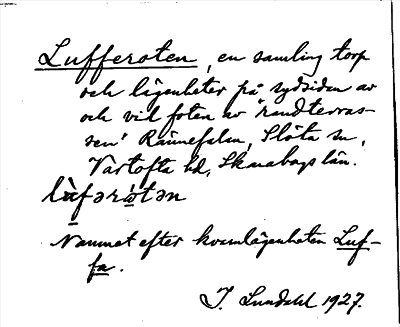 Lufferoten, en samling torp
och lägenheter på sydsidan av
och vid foten av "randterras-
sen" Rännefalan, Slöta sn,
Vartofta hd, Skaraborgs län.
lùfər tən
Namnet efter kvarnlägenheten Luf-
fa.
J. Lundahl 1927.